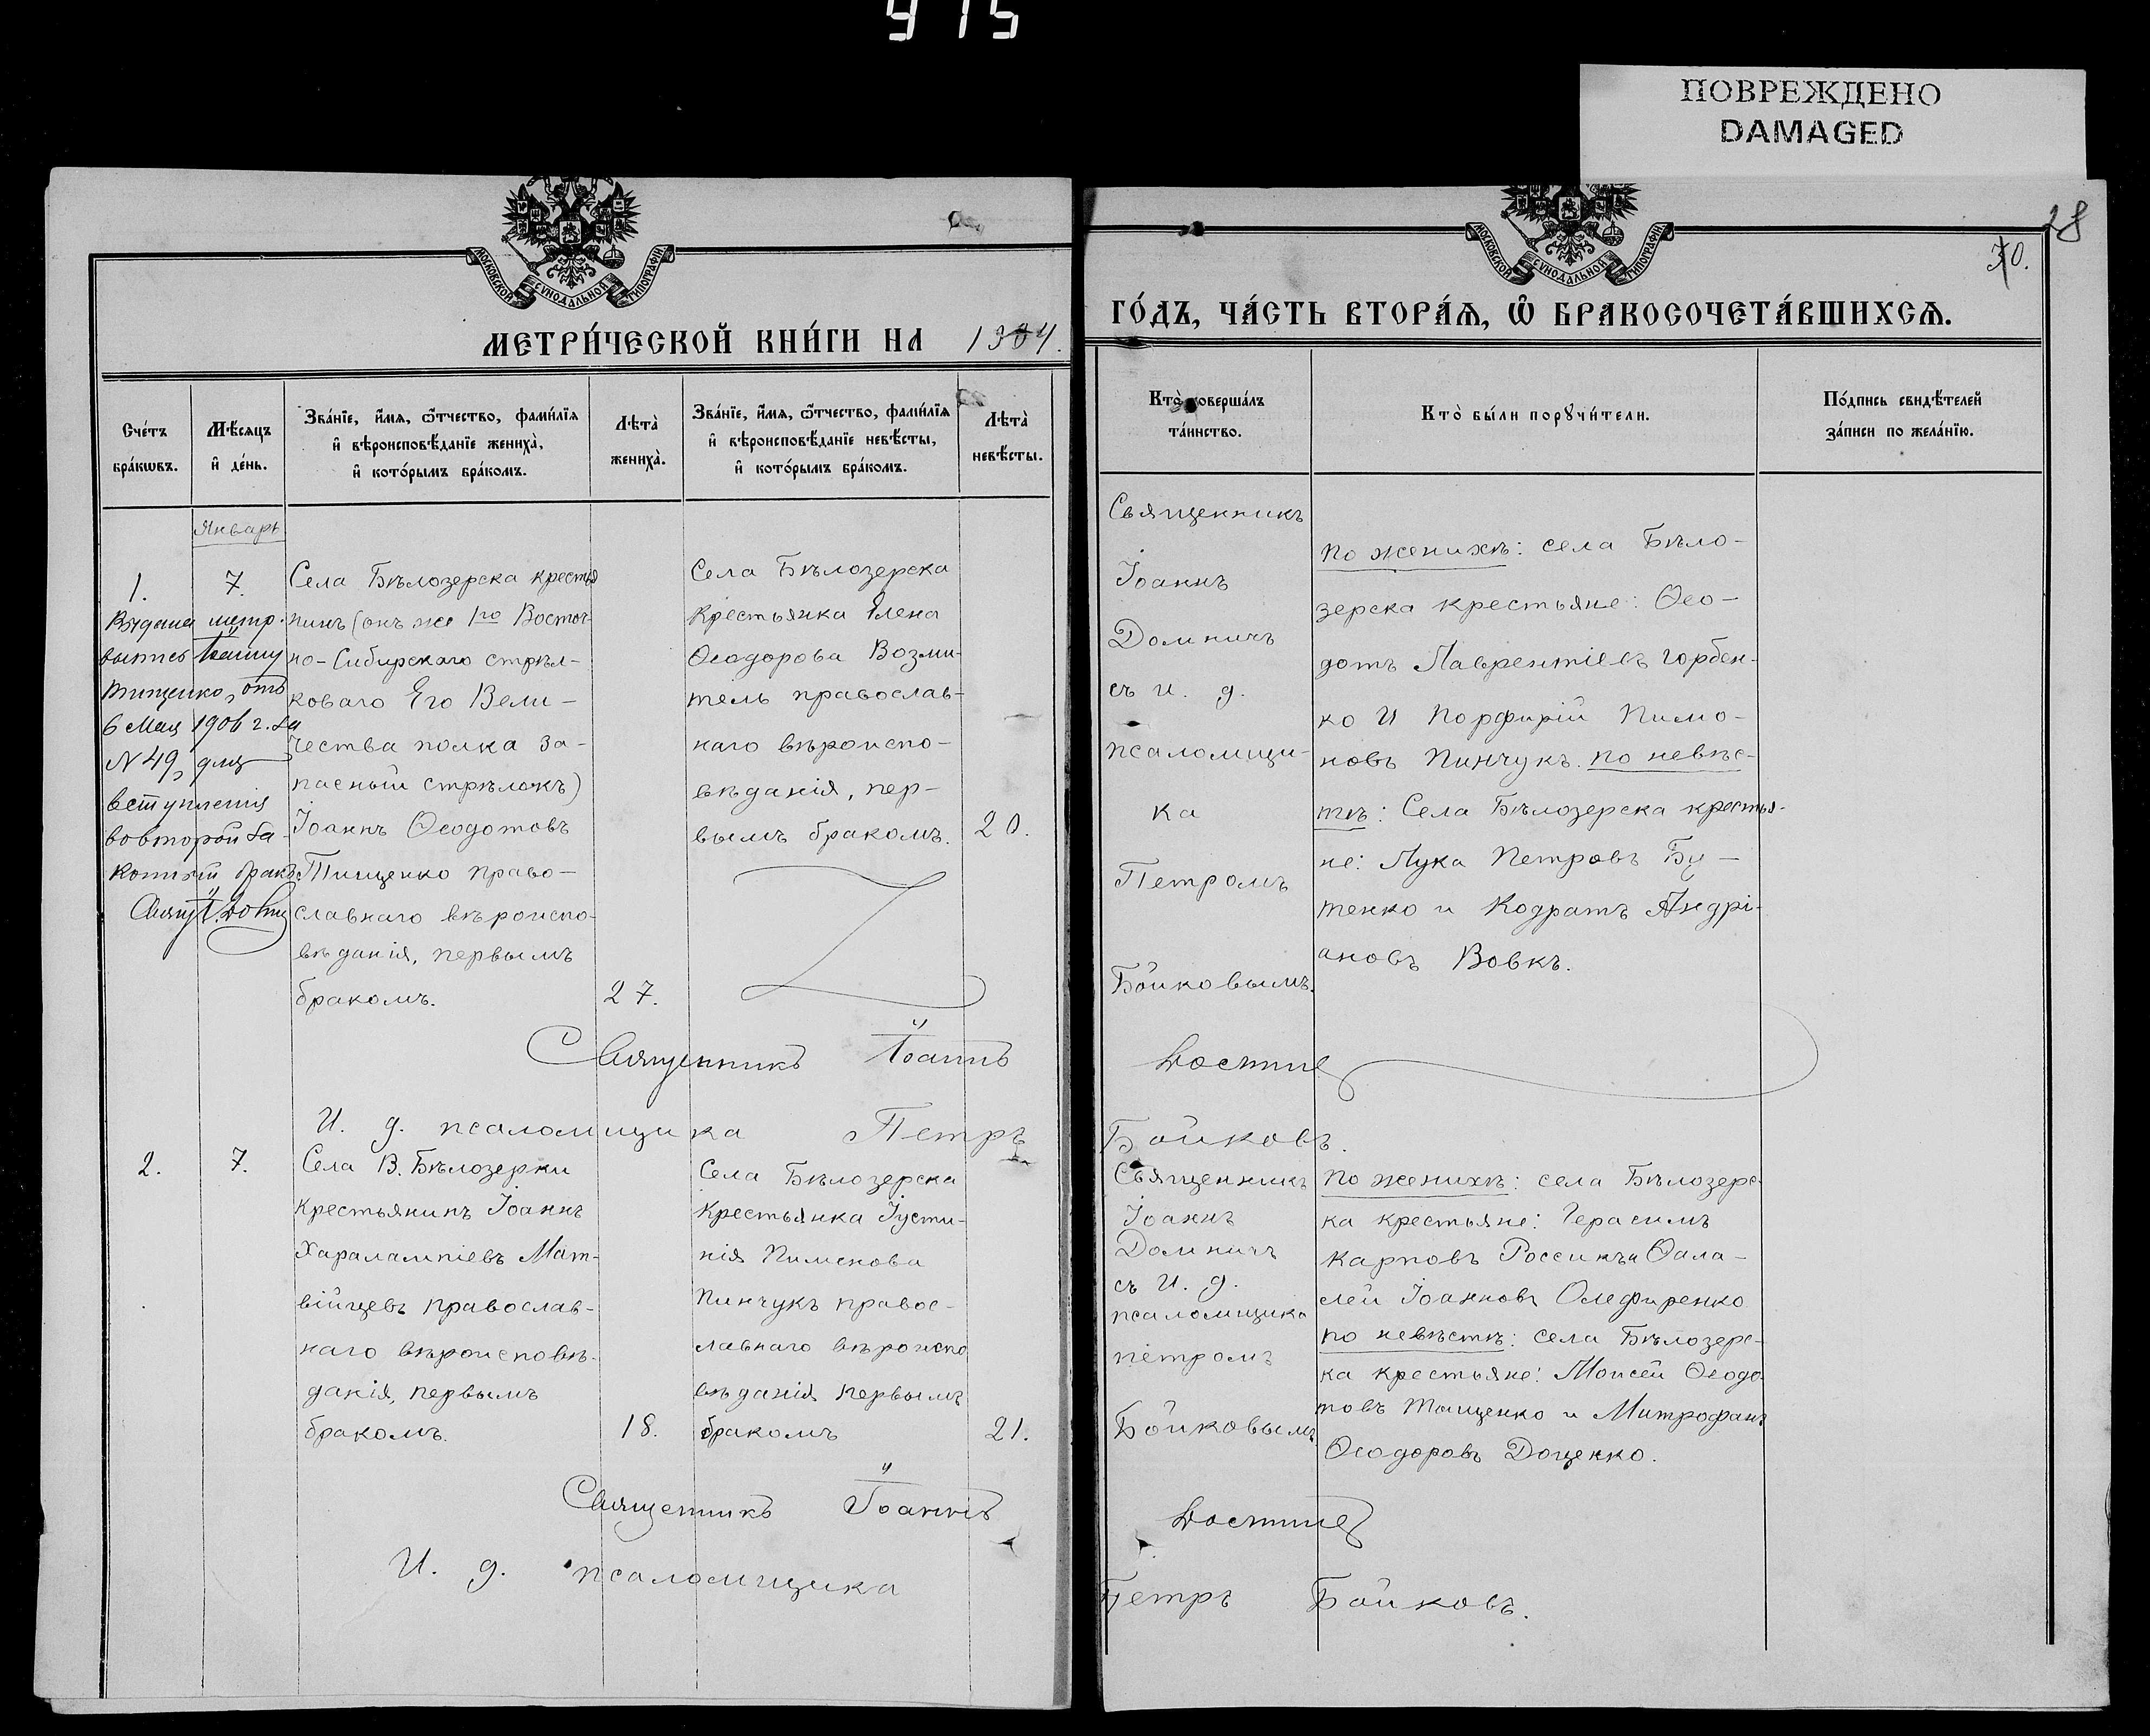 915
ПОВРЕЖДЕНО
DAMAGED
28
30.
МОСКОВСКОЙ СѴНОДАЛЬНОЙ ТИПОГРАФІИ
МОСКОВСКОЙ СѴНОДАЛЬНОЙ ТИПОГРАФІИ
МЕТРИ́ЧЕСКОЙ КНИ́ГИ НА 1904.
ГО́ДЪ, ЧА́СТЬ ВТОРА́Ѧ, Ѽ БРАКОСОЧЕТА́ВШИХСѦ.
Сче́тъ
бра́кѡвъ.
Мѣ́сѧцъ
и҆ де́нь.
Зва́нїе, и҆́мѧ, ѻ҆́тчество, фами́лїѧ
и҆ вѣроисповѣ́данїе жениха̀,
и҆ кото́рымъ бра́комъ.
Лѣта̀
жениха̀.
Зва́нїе, и҆́мѧ, ѻ҆́тчество, фами́лїѧ
и҆ вѣроисповѣ́данїе невѣ́сты,
и҆ кото́рымъ бра́комъ.
Лѣта̀
невѣ́сты.
Кто̀ соверша́лъ
та́инство.
Кто̀ бы́ли порꙋчи́тели.
По́дпись свидѣ́телей
за́писи по жела́нїю.
Январь
1.
7.
Выдана метр.
выпись Іоанну
Тищенко, отъ
6 Мая 1906 г. за
N 49, для
вступленія
во второй за-
конный бракъ.
Свящ. І.
Села Бѣлозерска крестья
нинъ (онъ же 1го Восточ-
но-Сибирскаго стрѣл-
коваго Его Вели-
чества полка за-
пасный стрѣлокъ)
Іоаннъ Ѳеодотовъ
Тищенко право-
славнаго вѣроиспо-
вѣданія, первымъ
бракомъ.
27.
Села Бѣлозерска
крестьянка Елена
Ѳеодорова Возми-
тель православ-
наго вѣроиспо-
вѣданія, пер-
вымъ бракомъ.
20.
Священникъ
Іоаннъ
Домничъ
съ и. д.
псаломщи-
ка
Петромъ
Бойковымъ.
по женихѣ: села Бѣло-
зерска крестьяне: Ѳео-
дотъ Лаврентіевъ Горбен-
ко и Порфирій Пимо-
новъ Пинчукъ. по невѣс-
тѣ: Села Бѣлозерска крестья-
не: Лука Петровъ Бу-
тенко и Кодратъ Андрі-
ановъ Вовкъ.
Священникъ Іоаннъ
И. д. псаломщика Петръ Бойковъ.
2.
7.
Села В. Бѣлозерки
крестьянинъ Іоаннъ
Харалампіевъ Мат-
війцевъ православ-
наго вѣроисповѣ-
данія, первымъ
бракомъ.
18.
Села Бѣлозерска
крестьянка Іусти-
нія Пименова
Пинчукъ правос-
лавнаго вѣроиспо
вѣданія первымъ
бракомъ
21.
Священникъ
Іоаннъ
Домничъ
съ и. д.
псаломщика
петромъ
Бойковымъ
по женихѣ: села Бѣлозерс-
ка крестьяне: Герасимъ
Карповъ
Іоанновъ Олефиренко
по невѣстѣ: села Бѣлозерс-
ка крестьяне: Моисей Ѳеодо
товъ Тищенко и Митрофанъ
Ѳеодоровъ Доценко.
Священникъ Іоаннъ
И. д. псаломщика Петръ Бойковъ.